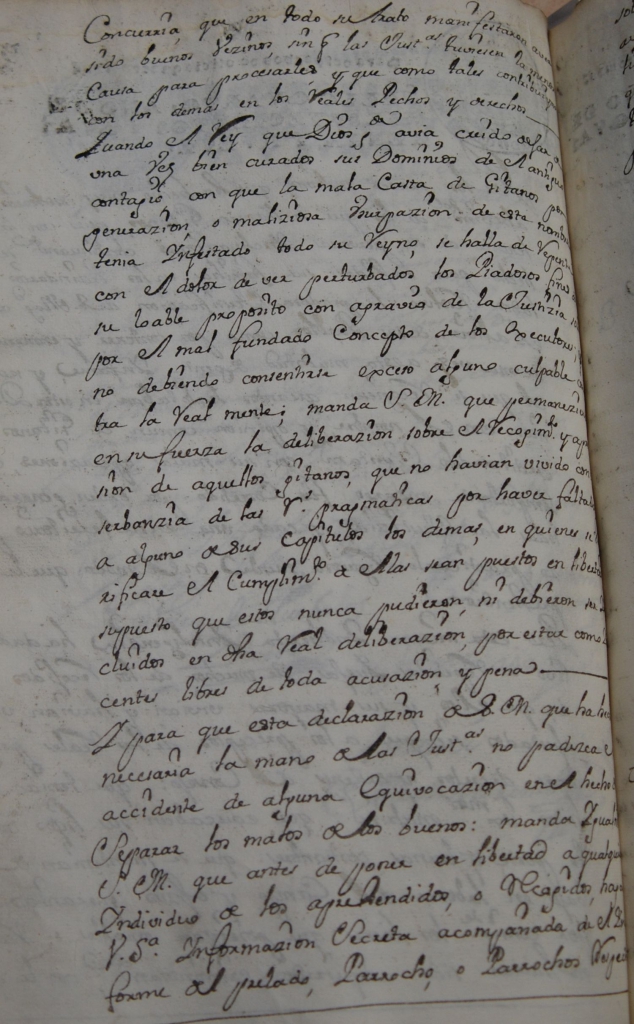 Concurria, que en todo su trato manifestaron aver
sido buenos Vezinos sin q̃ las Just.as tuviesen la menor
Causa para procesarles y que como tales contribuian
con los demas en los Reales Pechos y derechos
Quando el Rey que Dios g.de avia creido dejar de
una vez bien curados sus Dominios de el antiguo
contagio, con que la mala Casta de Gitanos por
generazion, o maliziosa Usurpazion de este nombre
tenia Infestado todo su Reyno, se halla de
con el dolor de ver perturbados los Piadosos fines de
su loable proposito con agravio de la Justizia
por el mal fundado Concepto de los Executores;
no debiendo consentirse exceso alguno culpable
tra la Real mente; manda S. M. que permanezca
en su fuerza la deliberazion sobre el Recogim.to y apre
sion de aquellos gitanos, que no havian vivido con
serbanzia de las R.s pragmaticas por haver faltado
a alguno de sus Capitulos los demas, en quienes se
rificare el Cumplim.to de ellas sean puestos en libertad
supuesto que estos nunca pudieron, ni debieron ser
cluidos en dha Real deliberazion, por estar como
centes libres de toda acusazion, y pena
Y para que esta declarazion de S. M. que ha hecho
necesaria la mano de las Just.as no padezca el
accidente de alguna Equivocazion en el hecho
Separar los malos de los buenos: manda Igual
S. M. que antes de poner en libertad a qualquier
Individuo de los aprehendidos, o Recogidos, haga
V. S.a Informazion Secreta acompañada de el In
forme del prelado, Parrocho, o Parrochos